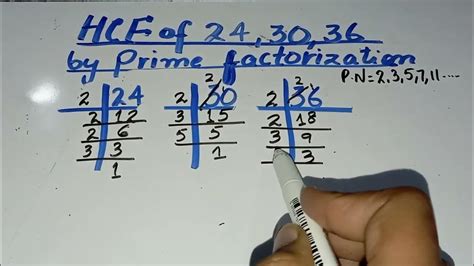 HCF of 24,30,36
by Prime factorization
P.N=2,3,5,7,11.....
2 24
2 12
2 6
3 3
1
2
2 30
3 15
5 5
1
2
2 36
2 18
3 9
3